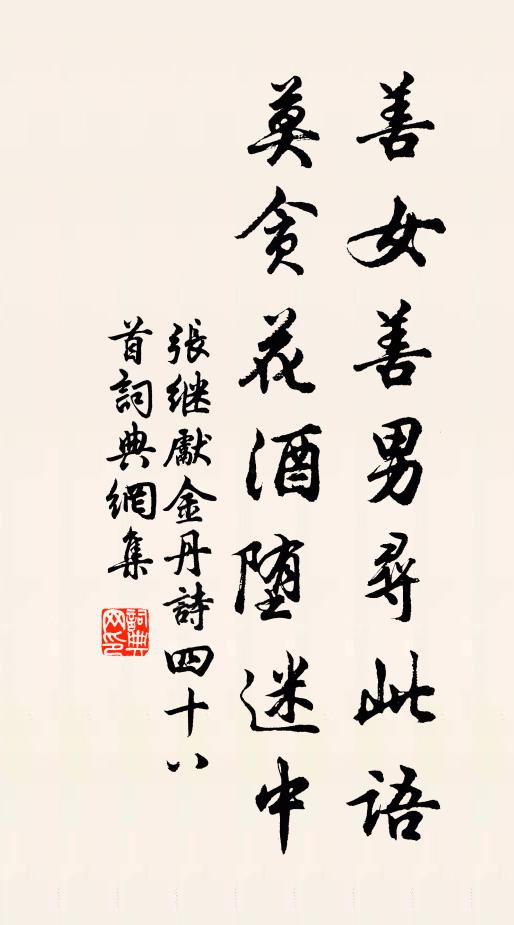 善女善男尋此語
莫貪花酒墮迷中
張继獻金丹詩四十八
首詞典網集
詞典網印